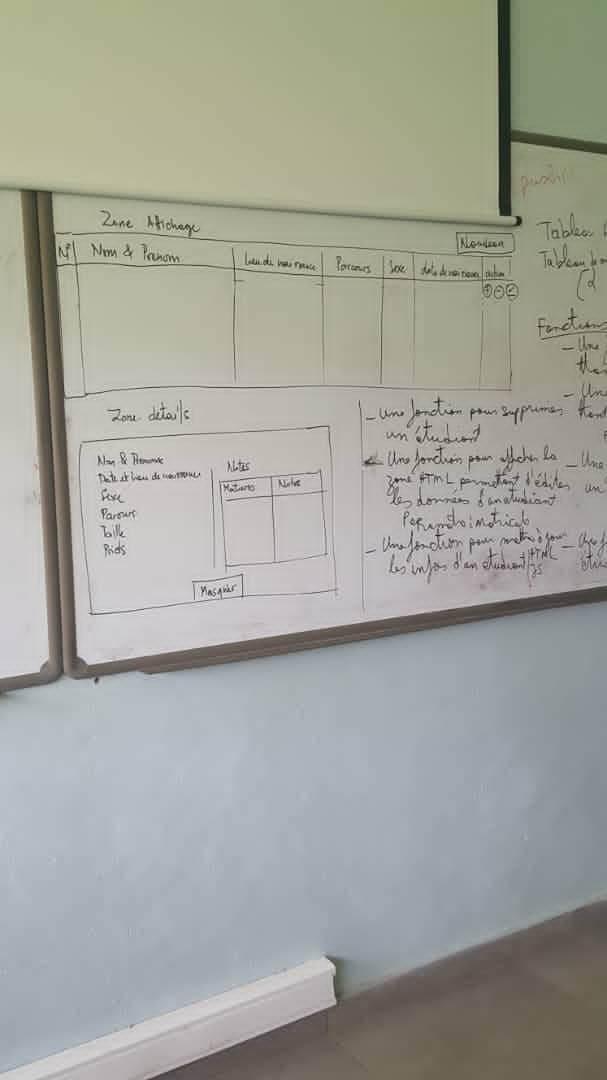 Zone Affichage
Nouveau
N° Nom & Prenom Lieu de naissance Parcours Sexe date de naissance action
+ -
Zone détails
Nom & Prenom
Date et lieu de naissance
Sexe
Parcours
Taille
Poids
Notes
Matieres Notes
Masquer
- Une fonction pour supprimer
un étudiant
- Une fonction pour afficher la
zone HTML permettant d'éditer
les données d'un étudiant
par matricule
- Une fonction pour mettre à jour
les infos d'un étudiant HTML
JS
Tableau
Tableau
Fonctions
- Une
- Une
- Une